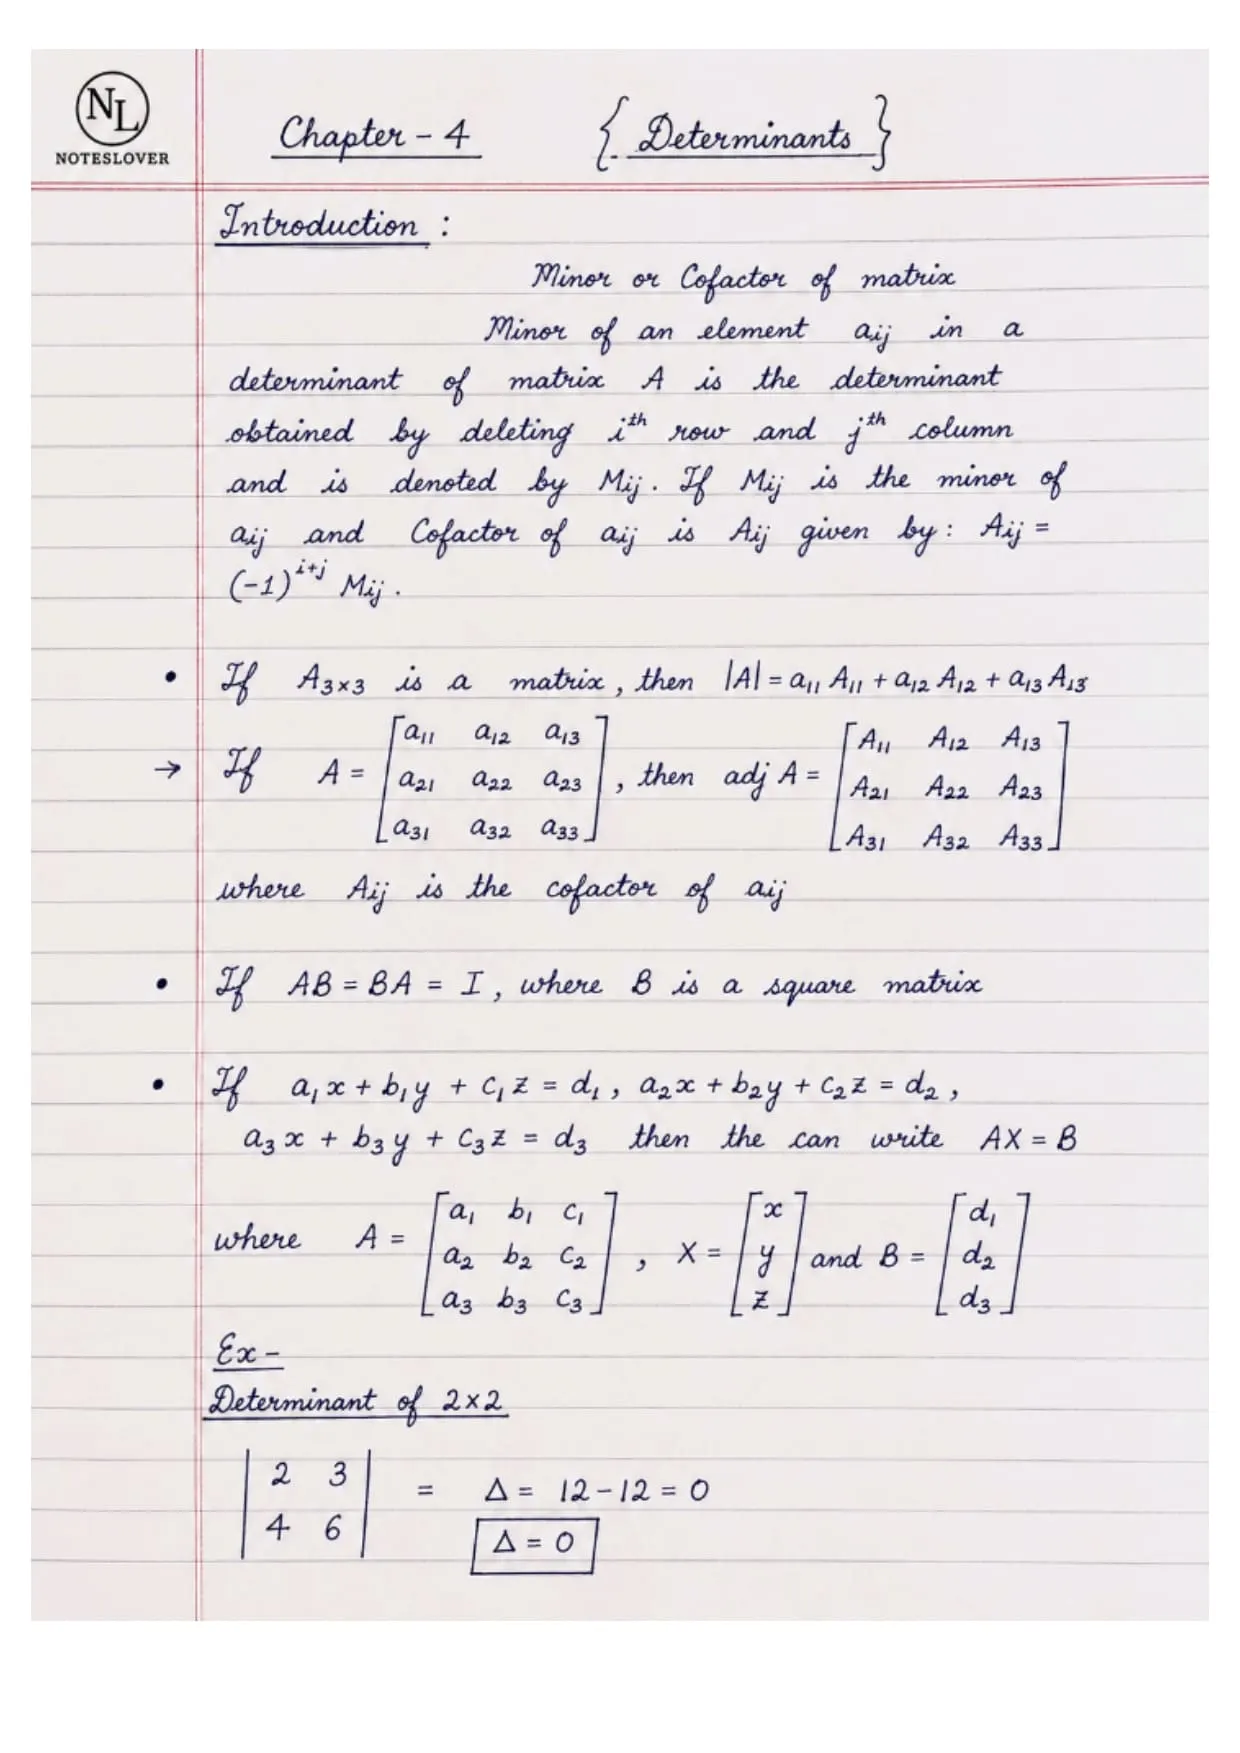 NL
NOTESLOVER
Chapter - 4 { Determinants }
Introduction :
Minor or Cofactor of matrix
Minor of an element aij in a
determinant of matrix A is the determinant
obtained by deleting i^th row and j^th column
and is denoted by Mij. If Mij is the minor of
aij and Cofactor of aij is Aij given by: Aij =
(-1)^i+j Mij.
• If A3×3 is a matrix, then |A| = a11 A11 + a12 A12 + a13 A13
→ If A = [a11 a12 a13
a21 a22 a23
a31 a32 a33], then adj A = [A11 A12 A13
A21 A22 A23
A31 A32 A33]
where Aij is the cofactor of aij
• If AB = BA = I, where B is a square matrix
• If a1x + b1y + c1z = d1, a2x + b2y + c2z = d2,
a3x + b3y + c3z = d3 then the can write AX = B
where A = [a1 b1 c1
a2 b2 c2
a3 b3 c3], X = [x
y
z] and B = [d1
d2
d3]
Ex -
Determinant of 2×2
|2 3
4 6| = Δ = 12 - 12 = 0
Δ = 0